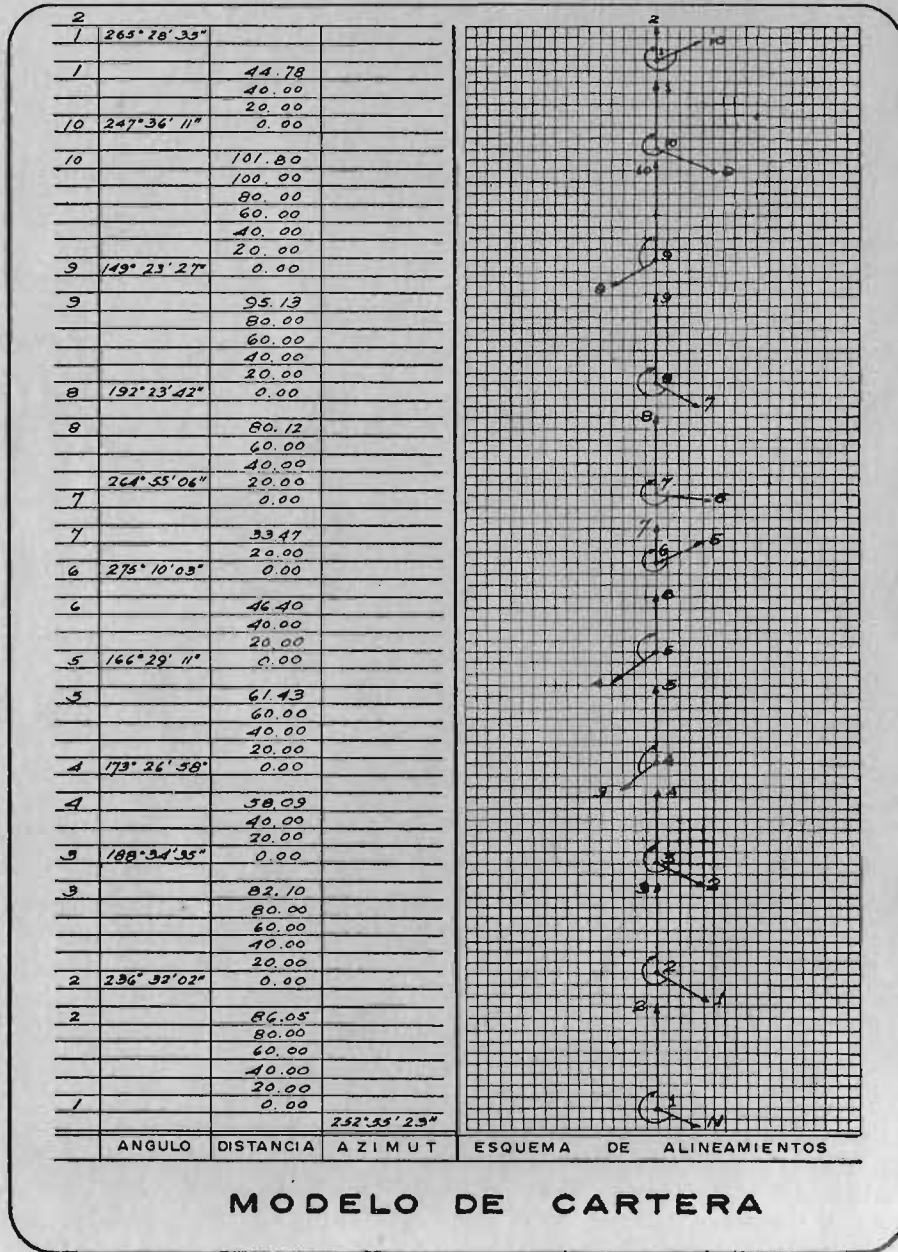 2
1 265° 28' 35"
1 44.78
40.00
20.00
10 247° 36' 11" 0.00
10 101.80
100.00
80.00
60.00
40.00
20.00
9 149° 23' 27" 0.00
9 95.13
80.00
60.00
40.00
20.00
8 192° 23' 42" 0.00
8 80.12
60.00
40.00
264° 55' 06" 20.00
7 0.00
7 33.47
20.00
6 275° 10' 03" 0.00
6 46.40
40.00
20.00
5 166° 29' 11" 0.00
5 61.43
60.00
40.00
20.00
4 173° 26' 58" 0.00
4 58.09
40.00
20.00
3 188° 34' 35" 0.00
3 82.10
80.00
60.00
40.00
20.00
2 236° 32' 02" 0.00
2 86.05
80.00
60.00
40.00
20.00
1 0.00
252° 55' 23"
ANGULO DISTANCIA AZIMUT
2
10
1
10
10
9
8
9
8
7
8
7
6
7
5
6
6
5
5
4
4
3
2
3
2
1
2
1
N
ESQUEMA DE ALINEAMIENTOS
MODELO DE CARTERA